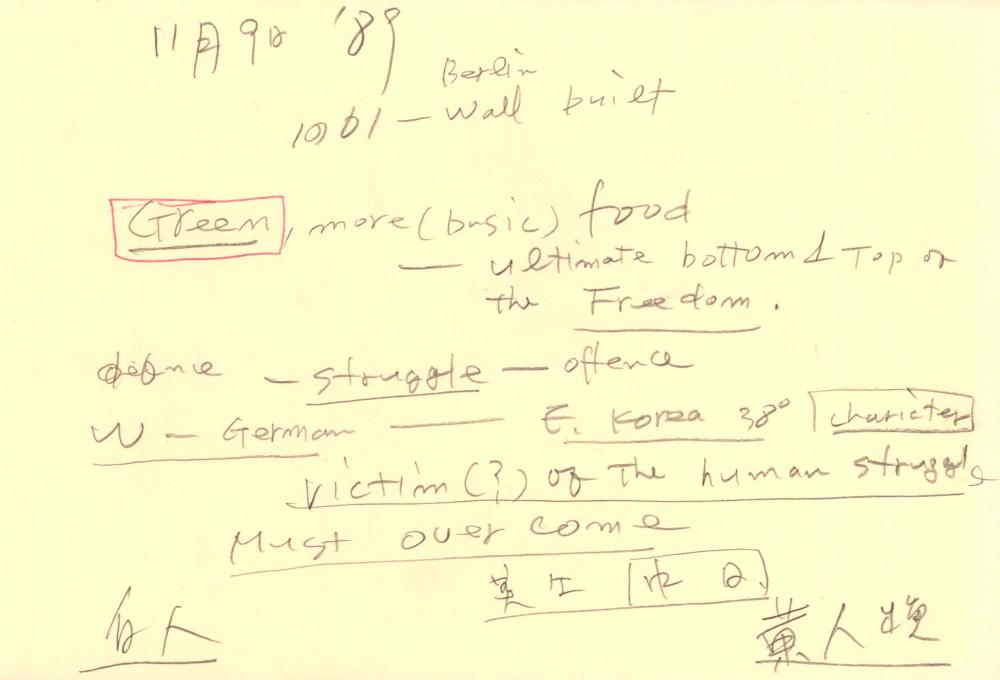 11月9日 '89
Berlin
1961 — Wall built
Green, more (basic) food
— ultimate bottom & Top of
the Freedom.
defence — struggle — offence
W — German — E. Korea 38° charicter
victim (?) of the human struggle
Must over come
白人
黄人